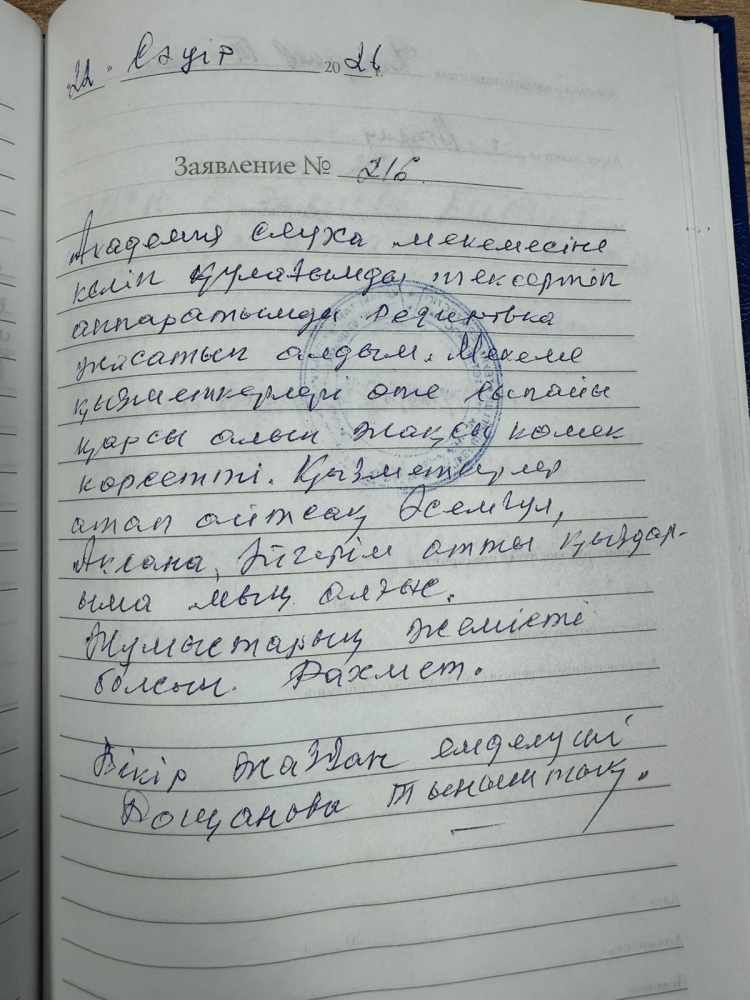 22. Сәуір 2026
Заявление № 216.
Академия слуха мекемесіне
келіп құлағымды тексертіп
аппаратымды
жасатып алдым. Мекеме
қызметкерлері өте сыпайы
қарсы алып жақсы көмек
көрсетті. Қызметкерлер
атап айтсақ Әсемгүл,
Аксана, отты қыздар-
ыма мың алғыс.
Жұмыстарың жемісті
болсын. Рахмет.
Пікір жазған емделуші